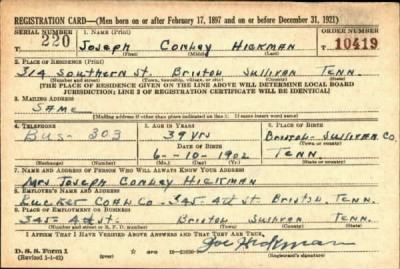 REGISTRATION CARD—(Men born on or after February 17, 1897 and on or before December 31, 1921)
SERIAL NUMBER 1. NAME (Print) ORDER NUMBER
T 220 Joseph Conley Hickman T 10419
(First) (Middle) (Last)
2. PLACE OF RESIDENCE (Print)
314 Southern St. Bristol Sullivan Tenn.
(Number and street) (Town, township, village, or city) (County) (State)
[THE PLACE OF RESIDENCE GIVEN ON THE LINE ABOVE WILL DETERMINE LOCAL BOARD
JURISDICTION; LINE 2 OF REGISTRATION CERTIFICATE WILL BE IDENTICAL]
3. MAILING ADDRESS
SAME
4. TELEPHONE 5. AGE IN YEARS 6. PLACE OF BIRTH
Bus- 303 39 yrs Bristol-Sullivan Co.
DATE OF BIRTH (Town or county)
6--10-1902 Tenn.
(Exchange) (Number) (Mo.) (Day) (Yr.) (State or country)
7. NAME AND ADDRESS OF PERSON WHO WILL ALWAYS KNOW YOUR ADDRESS
Mrs Joseph Conley Hickman
8. EMPLOYER'S NAME AND ADDRESS
Coal Co. 345-4th St. Bristol. Tenn.
9. PLACE OF EMPLOYMENT OR BUSINESS
345-4th St. Bristol Sullivan Tenn.
(Number and street or R. F. D. number) (Town) (County) (State)
I AFFIRM THAT I HAVE VERIFIED ABOVE ANSWERS AND THAT THEY ARE TRUE.
D. S. S. Form 1 Joe Hickman
(Revised 1-1-42) (over) (Registrant's signature)